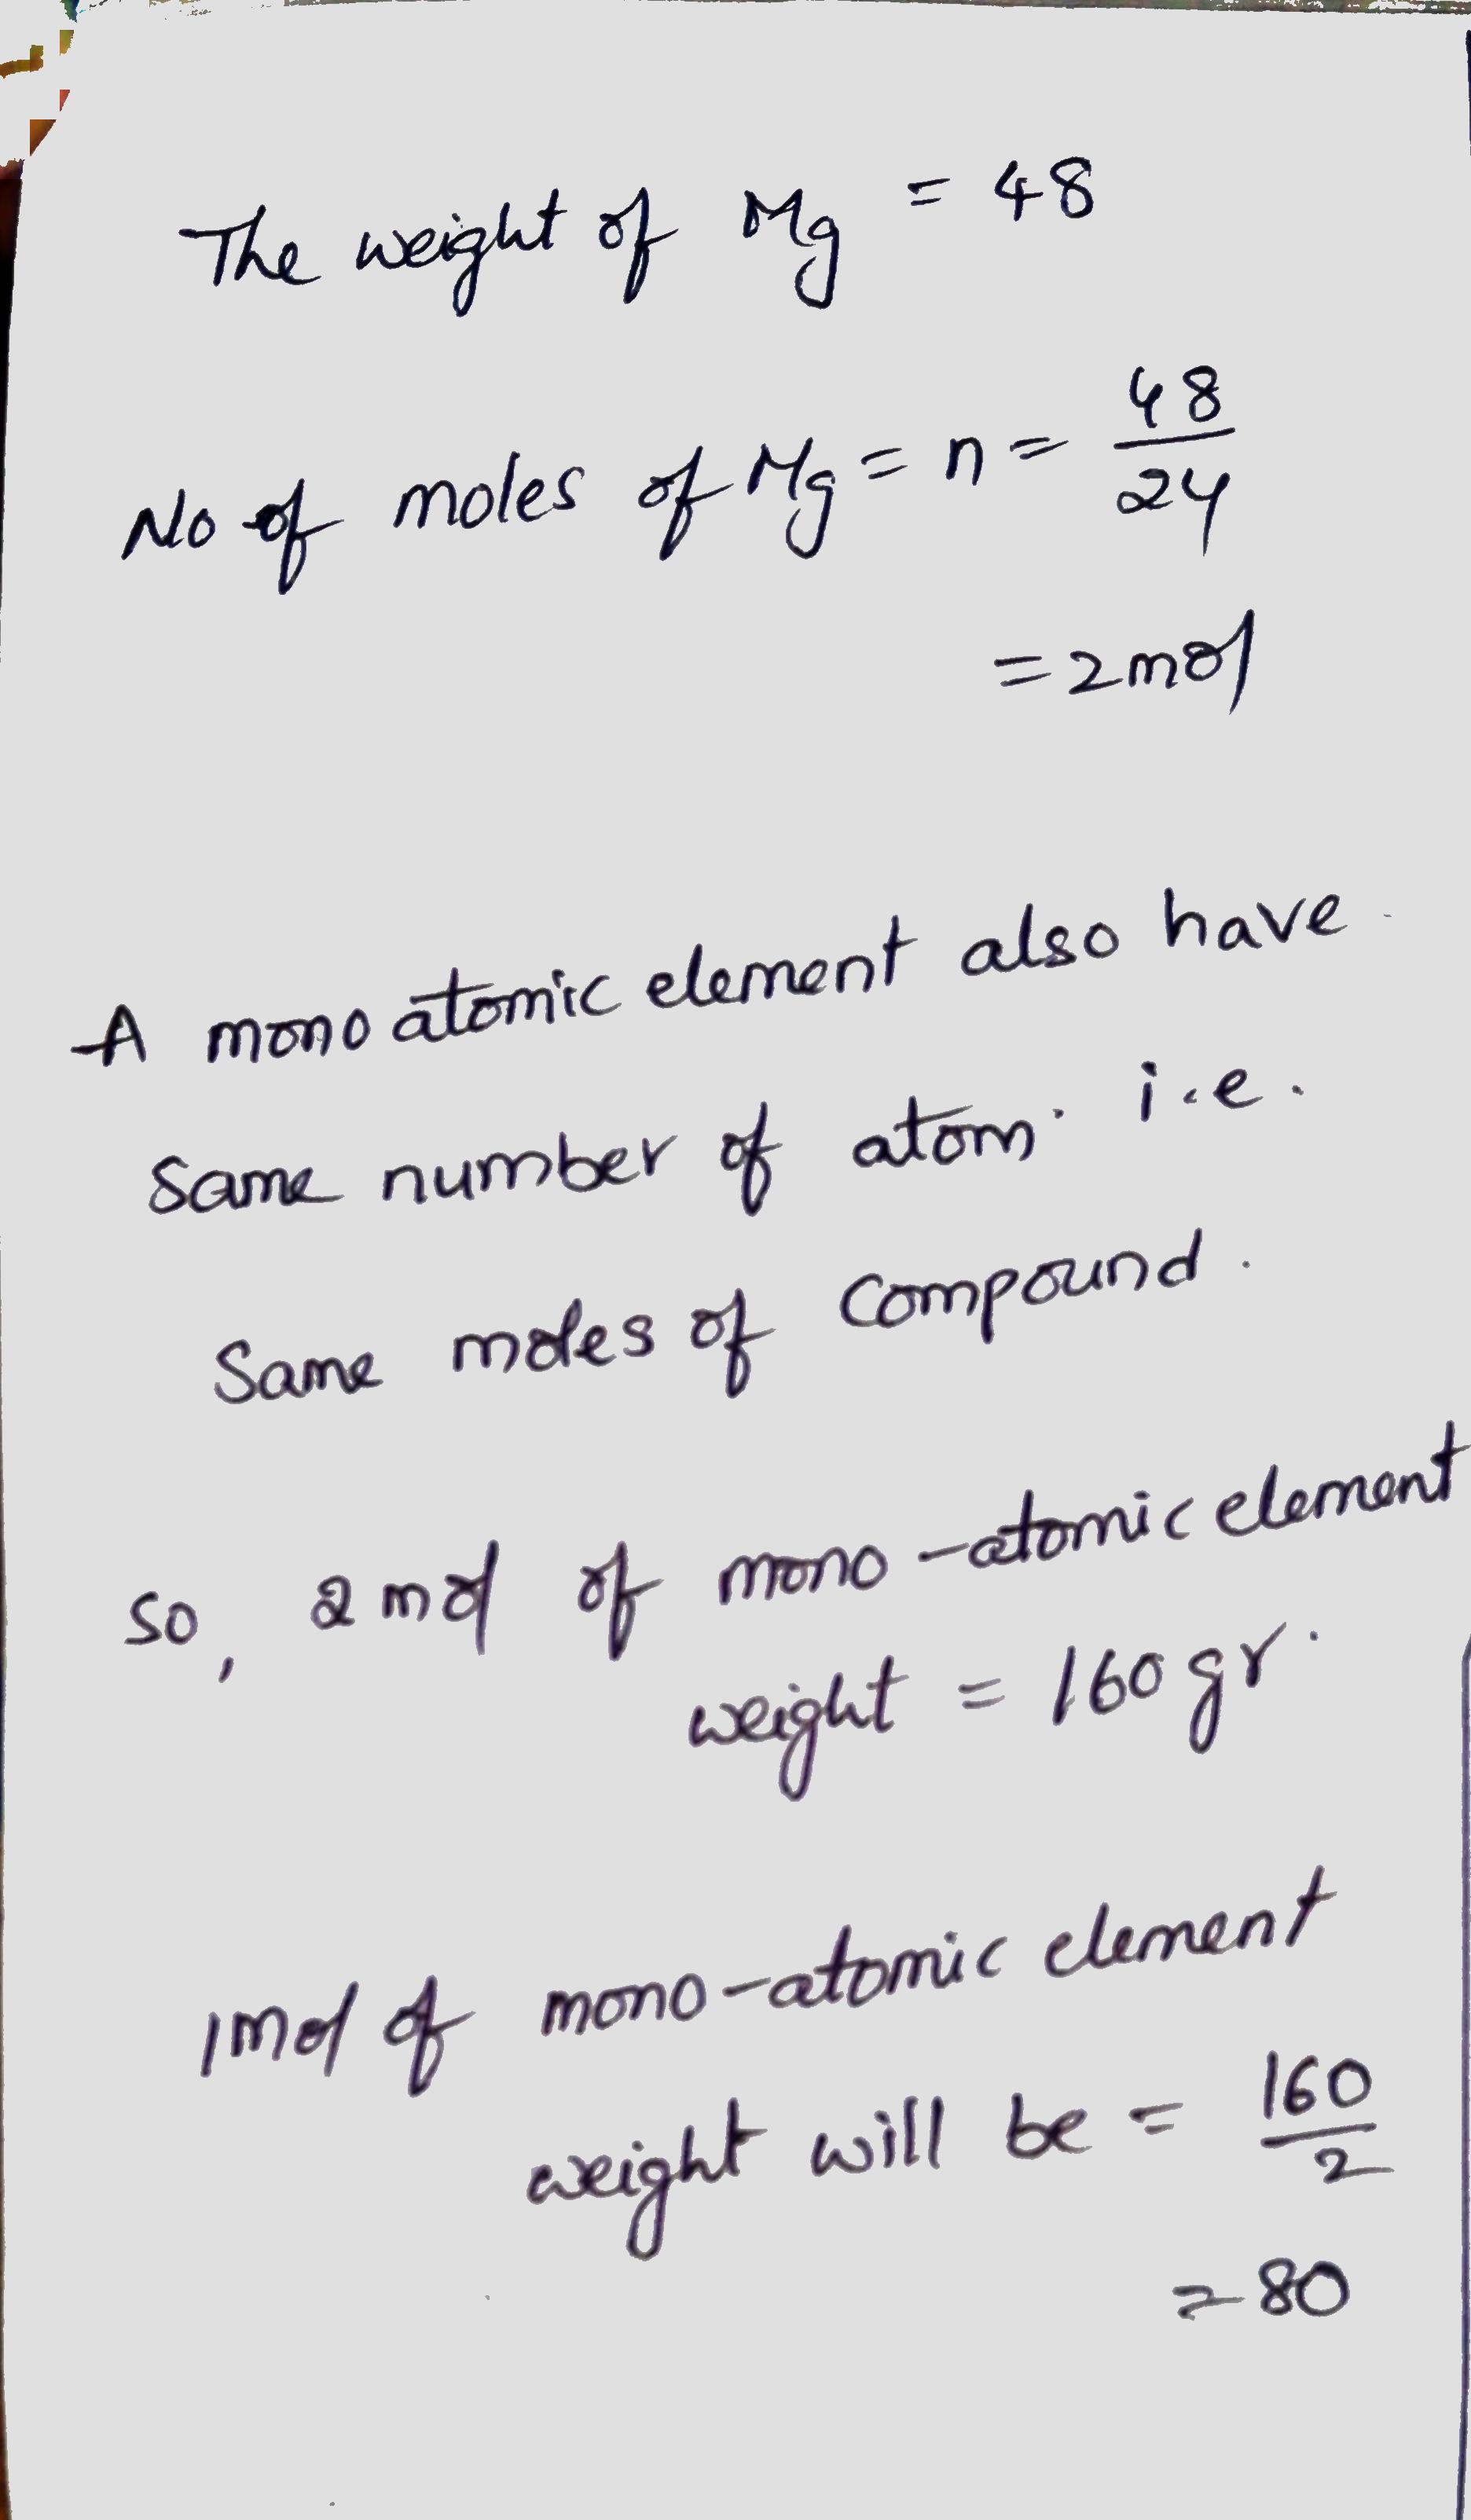 The weight of Mg = 48
No of moles of Mg = n = 48/24
= 2mol
A mono atomic element also have
same number of atom. i.e.
Same moles of compound.
so, 2 mol of mono-atomic element
weight = 160 gr.
1mol of mono-atomic element
weight will be = 160/2
= 80